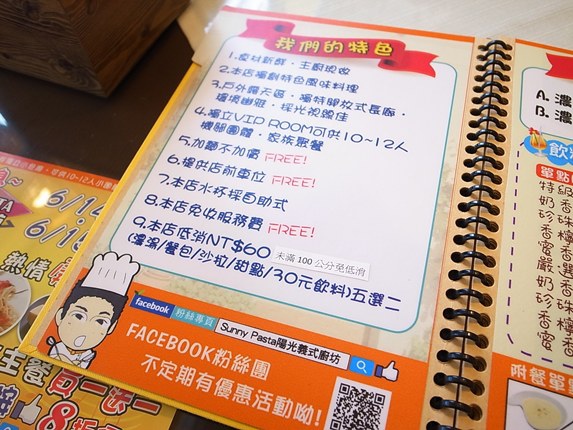 我們的特色
1.產材新鮮，主廚現做
2.本店獨創特色風味料理
3.戶外露天區，獨特開放式長廊，
環境幽雅，採光視線佳
4.獨立VIP ROOM可供10~12人
機關團體，家族聚餐
5.加麵不加價 FREE!
6.提供店前車位 FREE!
7.本店水杯採自助式
8.本店免收服務費 FREE!
9.本店低消NT$60 未滿100公分免低消
(濃湯/餐包/沙拉/甜點/30元飲料)五選二
facebook 粉絲專頁 Sunny Pasta陽光義式廚坊
FACEBOOK粉絲團
不定期有優惠活動呦!
A. 濃
B. 濃
飲
單點
特級
奶香
珍珠
香檸
附餐單點
6/14
6/1
熱情
主餐 買一送一
8折